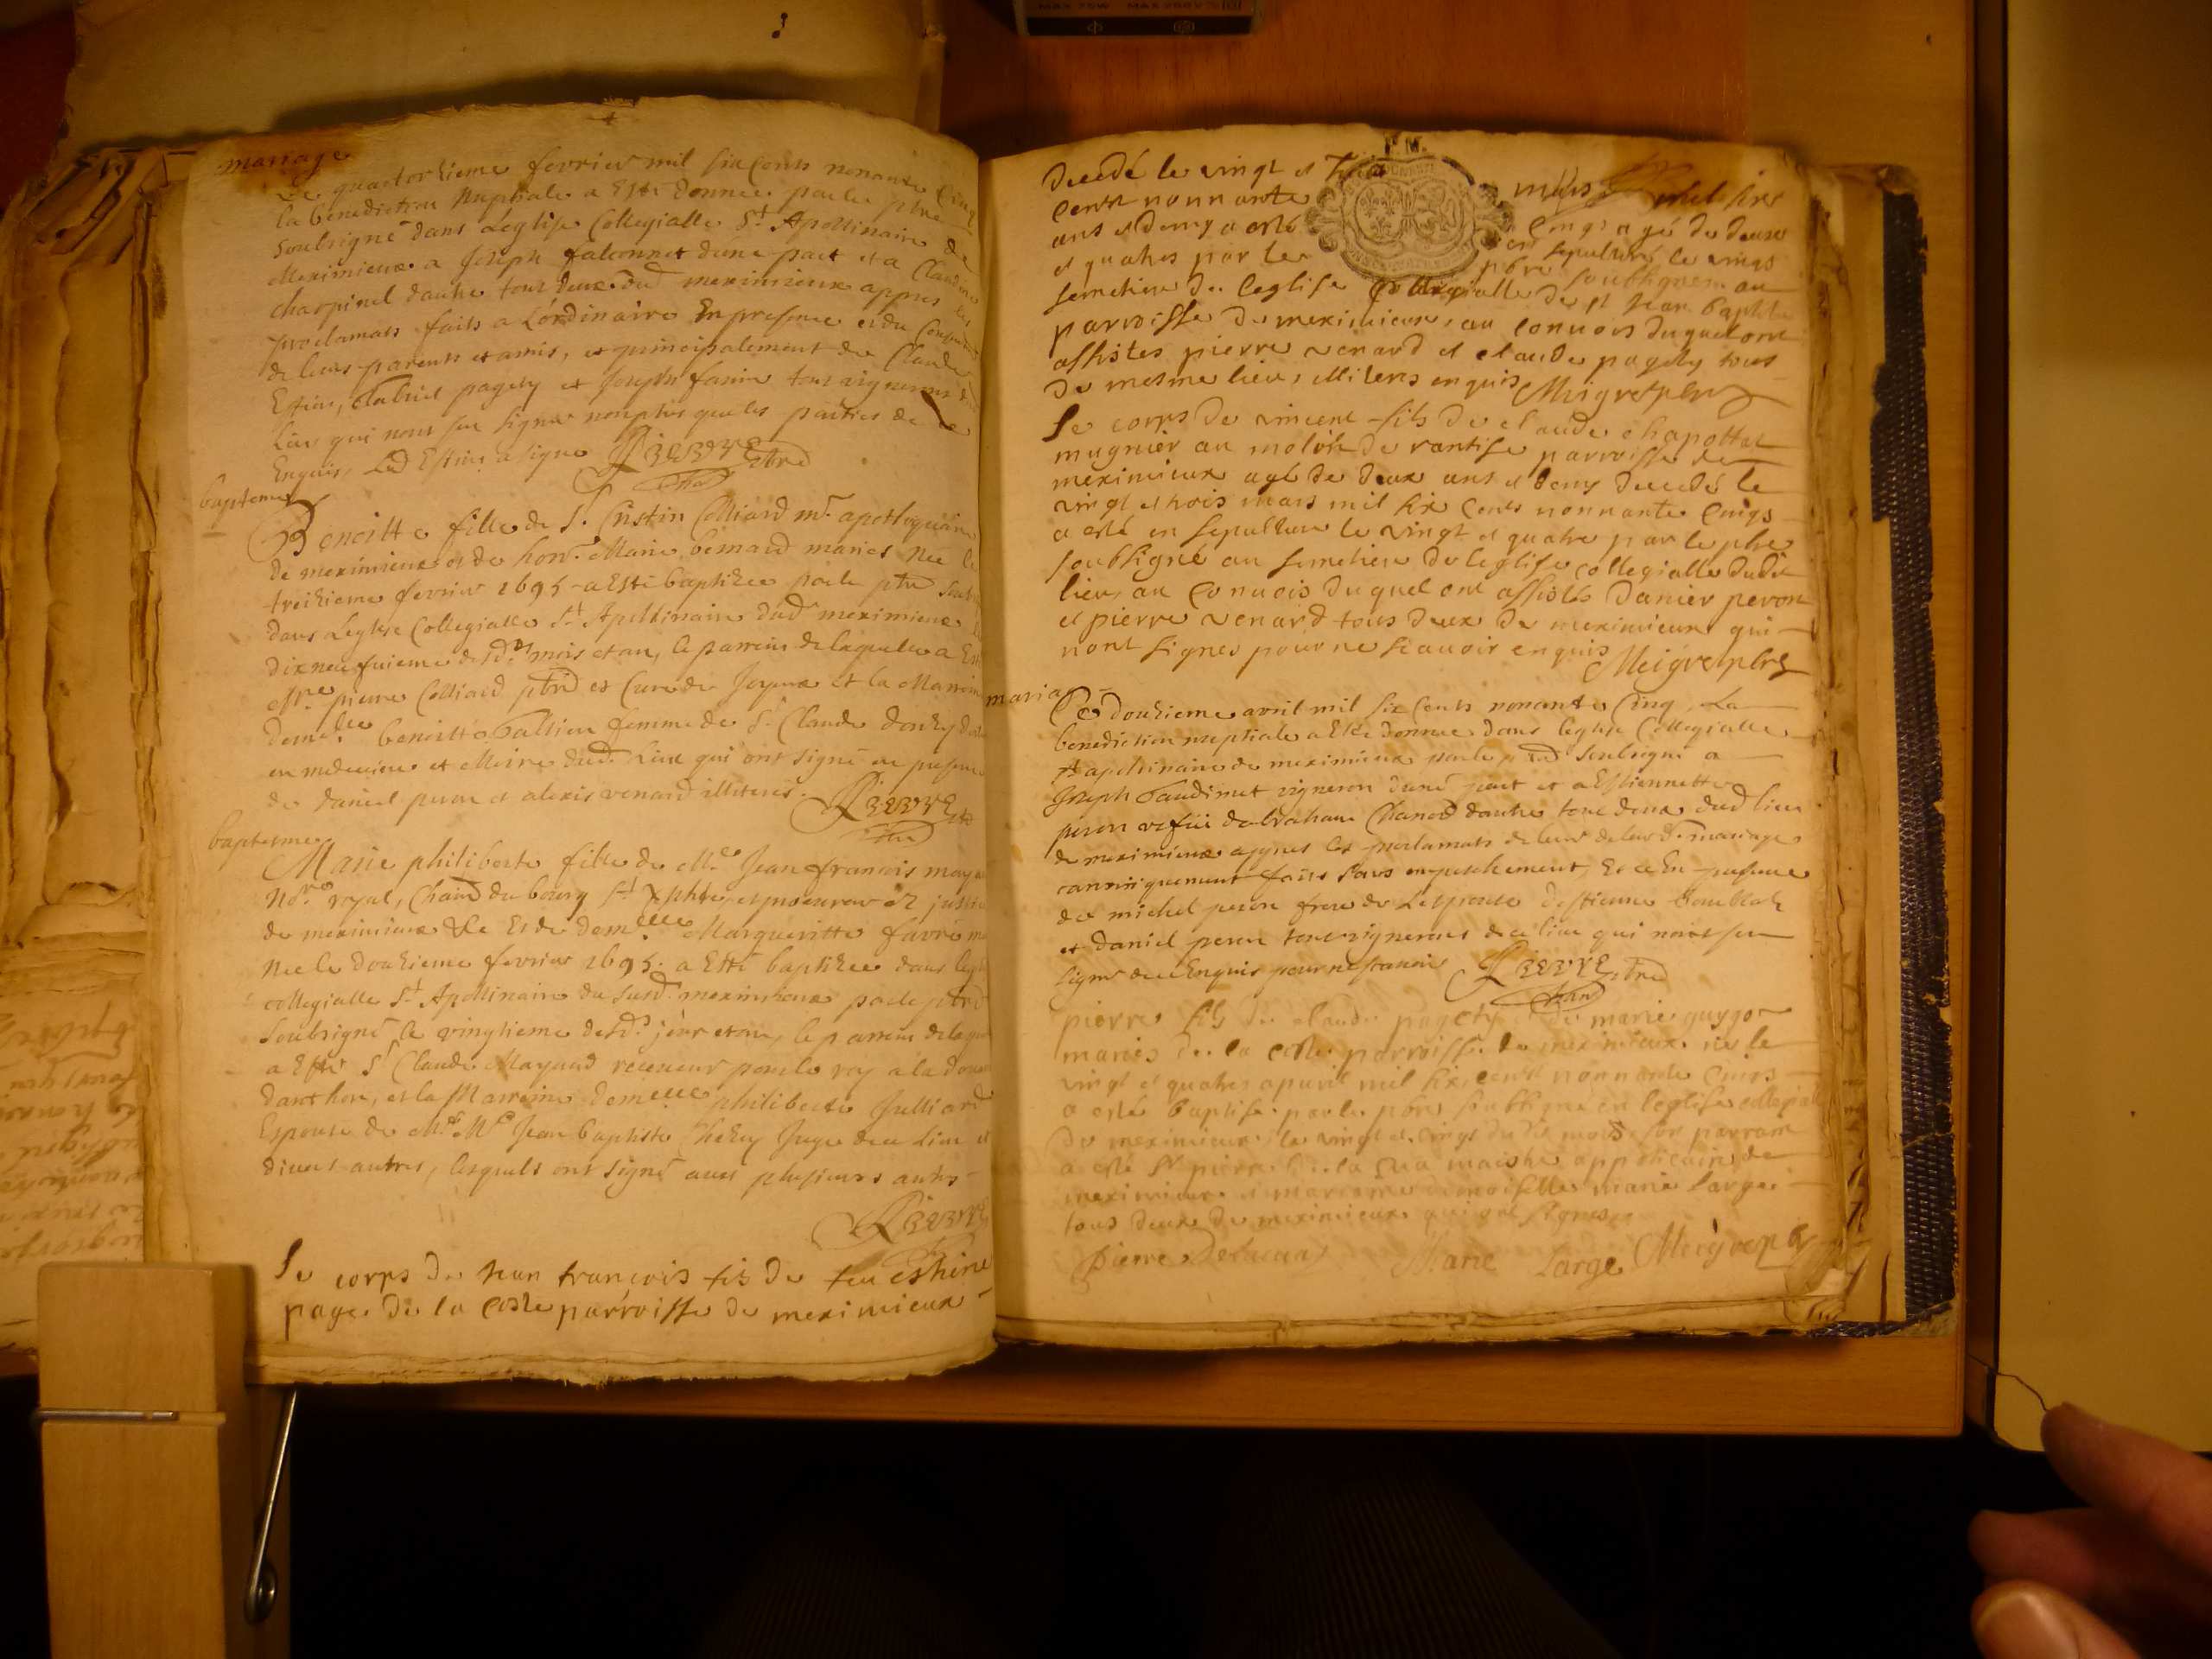 mariage
Le quactorzieme fevrier mil six cents nonante Cinq
la benediction Nuptiale a Esté donnée par le ptre
soubsigné dans Leglise Collegialle St Apollinaire de
Meximieux a Joseph falconnet dune part et a Claudine
charpinel dautre tous deux dud meximieux appres les
proclamats faits a Lordinaire En presence et du Consentement
de leurs parents et amis, et principalement de Claude
Estin, pagety et Joseph tous vignerons
Lieu qui nont sceu signer non plus que les parties de ce
Enquis, Led Estin a signé Favre ptre
bapteme
Benoitte fille de Sr Cristin Colliard mr apothiquaire
de meximieux et de honr. Marie bernard mariés née le
treizieme fevrier 1695 a Esté baptizée par le ptre
dans Leglise Collegialle St Apollinaire dud meximieux
dixneufuieme desd. mois et an, le parrein de laquelle a Esté
Mre pierre Colliard ptre et Curé de Joyeux et la Marreine
demelle benoitte femme de Sr Claude
en medecine et Maire dud. Lieu qui ont signé en presence
de daniel peron et alexis venard illiterés. Favre ptre
baptesme
Marie philiberte fille de Me Jean francois
Nore royal, Chatd du bourg St et procureur
de meximieux Et de demelle Margueritte favre
Née le douzieme fevrier 1695. a Esté baptizée dans
collegialle St Apollinaire du susd. meximieux par le ptre
soubsigné le vingtieme desd. jour et an, le parrein
a Esté Sr Claude Mayaud receveur pour le roy a la
danthon, et la Marreine demelle philiberte Julliard
Espouse de Me Jean baptiste Chezey Juge de ce Lieu et
divers autres, lesquels ont signé avec plusieurs autres
Favre
Le corps de Jean francois fis de feu
page de la coste parroisse de meximieux
decedé le vingt et trois mars mil six
cents nonnante Cinqs agé de deux
ans et demy a esté en sepulture le vingt
et quatres par le ptre soubsigné au
semetiere de leglise Collegialle de St Jean baptiste
parroisse de meximieux, au convois duquel ont
assistes pierre venard et claude pagety tous
de mesme lieu, illiteres enquis Meigret ptre
Le corps de vincent fils de claude chapottat
mugnier au molin de parroisse de
meximieux agé de deux ans et demy decedé le
vingt et trois mars mil six cents nonnante Cinqs
a esté en sepulture le vingt et quatre par le ptre
soubsigné au semetiere de leglise collegialle dudit
lieu, au Convois duquel ont assistés peron
et pierre venard tous deux de meximieux qui
nont signes pour ne scavoir enquis Meigret ptre
mariage
Le douzieme avril mil six cents nonante Cinq, La
benediction nuptiale a Esté donnée dans leglise Collegialle
St apollinaire de meximieux par le ptre soubsigné a
Joseph vigneron dune part et a Estiennette
peron dabraham dautre tous deux dud lieu
de meximieux appres les proclamats de leur mariage
canoniquement faits sans empeschement, Et ce En presence
de michel peron frere de Lespouse destienne
et daniel peron tous vignerons de ce lieu qui nont sceu
signer de ce Enquis pour ne scavoir Favre ptre
pierre fils de claude pagety et de marie guygo
mariés de la coste parroisse de meximieux né le
vingt et quatres apvril mil six cents nonnante Cinqs
a esté baptisé par le ptre soubsigné en leglise collegialle
de meximieux le vingt et cinqs du dit mois son parrain
a esté Sr pierre maistre appoticaire de
meximieux et marraine demoiselle marie large
tous deux de meximieux qui ont signes
Pierre Marie Large Meigret ptre